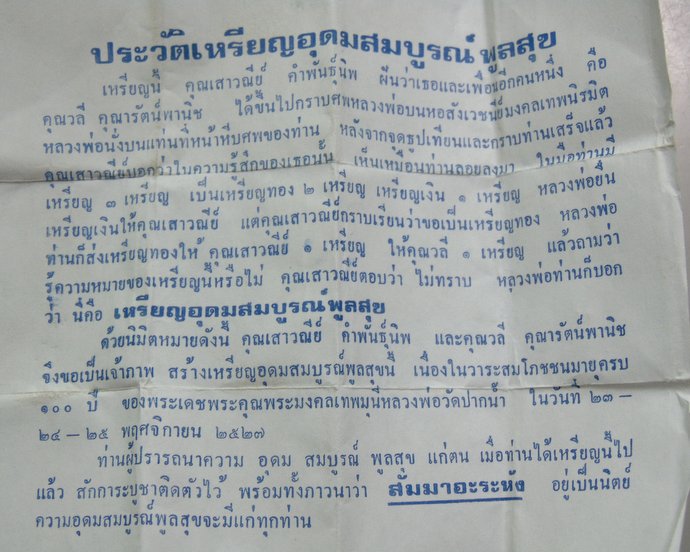 ประวัติเหรียญอุดมสมบูรณ์พูลสุข
เหรียญนี้ คุณเสาวณีย์ คำพันธุ์นิพ ฝันว่าเธอและเพื่อนอีกคนหนึ่ง คือ
คุณวลี คุณารัตน์พานิช ได้ขึ้นไปกราบศพหลวงพ่อบนหอสังเวชนีย์มงคลเทพนิรมิต
หลวงพ่อนั่งบนแท่นที่หน้าหีบศพของท่าน หลังจากจุดธูปเทียนและกราบท่านเสร็จแล้ว
คุณเสาวณีย์บอกว่าในความรู้สึกของเธอนั้น เห็นเหมือนท่านลอยลงมา ในมือท่านมี
เหรียญ ๓ เหรียญ เป็นเหรียญทอง ๒ เหรียญ เหรียญเงิน ๑ เหรียญ หลวงพ่อยื่น
เหรียญเงินให้คุณเสาวณีย์ แต่คุณเสาวณีย์กราบเรียนว่าขอเป็นเหรียญทอง หลวงพ่อ
ท่านก็ส่งเหรียญทองให้ คุณเสาวณีย์ ๑ เหรียญ ให้คุณวลี ๑ เหรียญ แล้วถามว่า
รู้ความหมายของเหรียญนี้หรือไม่ คุณเสาวณีย์ตอบว่า ไม่ทราบ หลวงพ่อท่านก็บอก
ว่า นี่คือ เหรียญอุดมสมบูรณ์พูลสุข
ด้วยนิมิตหมายดังนี้ คุณเสาวณีย์ คำพันธุ์นิพ และคุณวลี คุณารัตน์พานิช
จึงขอเป็นเจ้าภาพ สร้างเหรียญอุดมสมบูรณ์พูลสุขนี้ เนื่องในวาระสมโภชชนมายุครบ
๑๐๐ ปี ของพระเดชพระคุณพระมงคลเทพมุนีหลวงพ่อวัดปากน้ำ ในวันที่ ๒๓ –
๒๔ – ๒๕ พฤศจิกายน ๒๕๒๗
ท่านผู้ปรารถนาความ อุดม สมบูรณ์ พูลสุข แก่ตน เมื่อท่านได้เหรียญนี้ไป
แล้ว สักการะบูชาติดตัวไว้ พร้อมทั้งภาวนาว่า สัมมาอะระหัง อยู่เป็นนิตย์
ความอุดมสมบูรณ์พูลสุขจะมีแก่ทุกท่าน